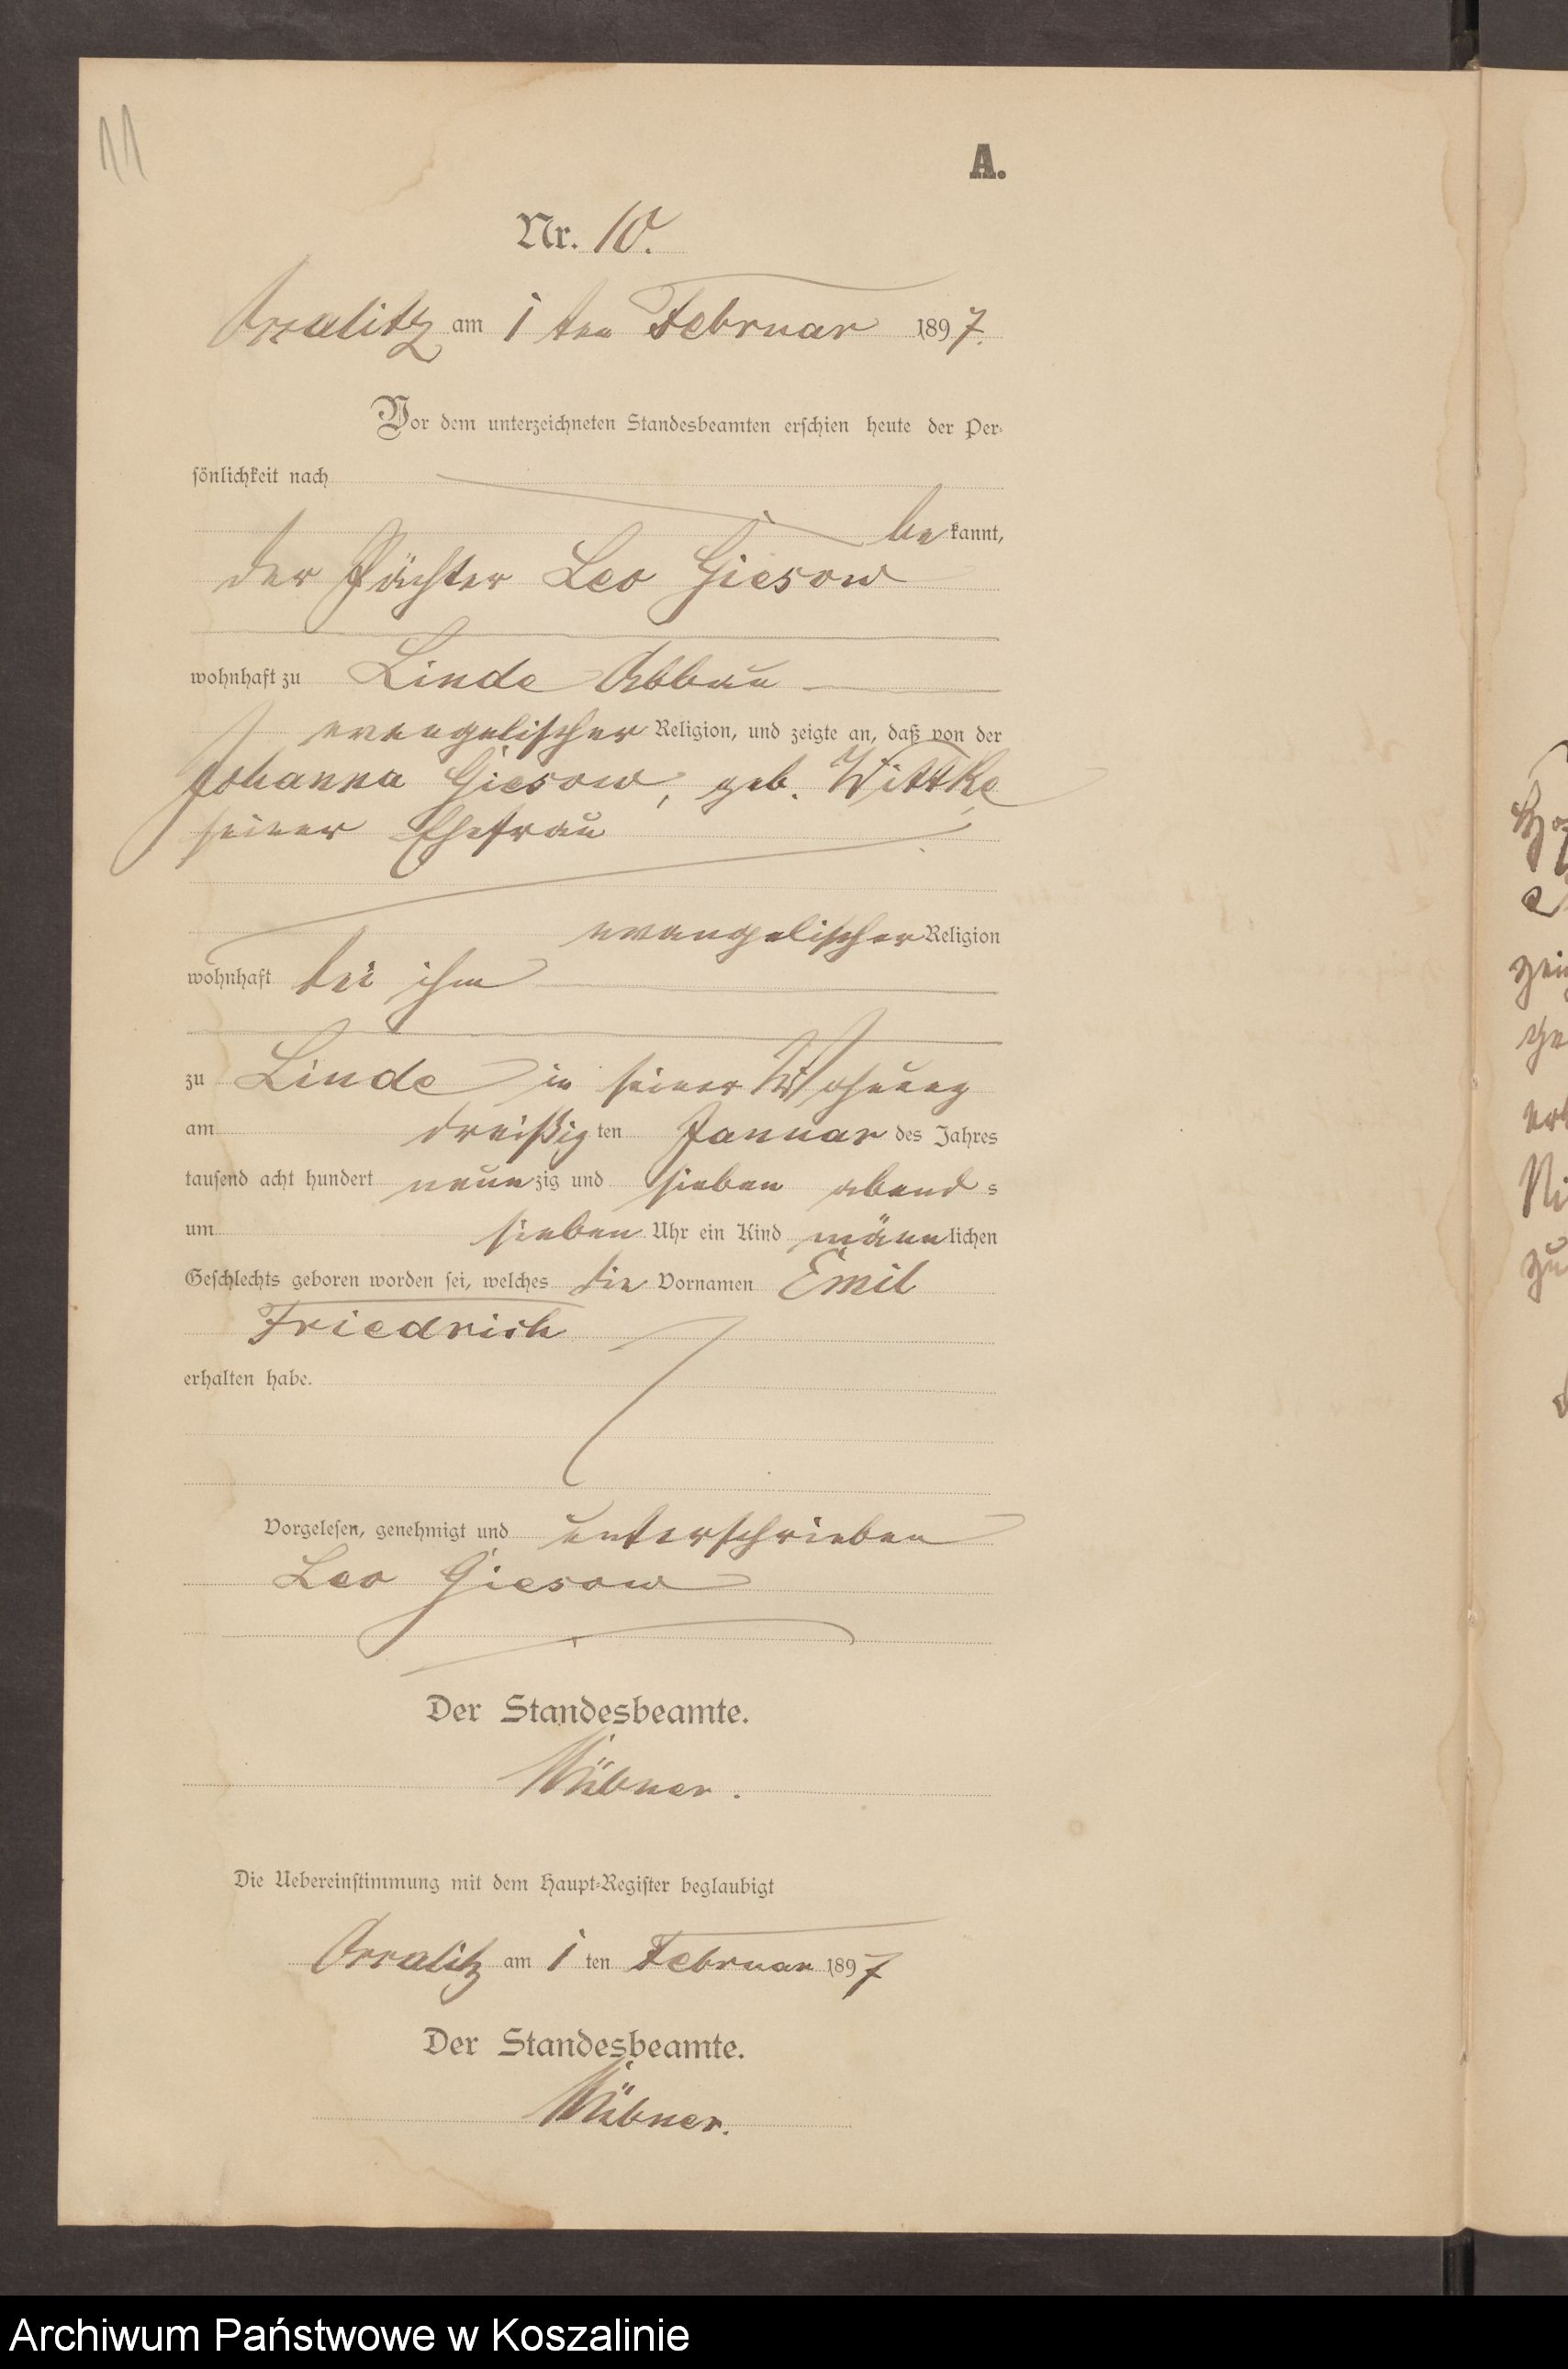 11
A.
Nr. 10.
am 1 ten Februar 1897.
Vor dem unterzeichneten Standesbeamten erschien heute der Per-
sönlichkeit nach
bekannt,
der Pächter Leo Giesow
wohnhaft zu Linde Abbau
evangelischer Religion, und zeigte an, daß von der
Johanna Giesow, geb. Wittke
seiner Ehefrau
evangelischer Religion
wohnhaft bei ihm
zu Linde in seiner Wohnung
am dreißigten Januar des Jahres
tausend acht hundert neunzig und sieben abends
um sieben Uhr ein Kind männlichen
Geschlechts geboren worden sei, welches die Vornamen Emil
Friedrich
erhalten habe.
Vorgelesen, genehmigt und unterschrieben
Leo Giesow
Der Standesbeamte.
Die Uebereinstimmung mit dem Haupt-Register beglaubigt
am 1 ten Februar 1897
Der Standesbeamte.
Archiwum Państwowe w Koszalinie